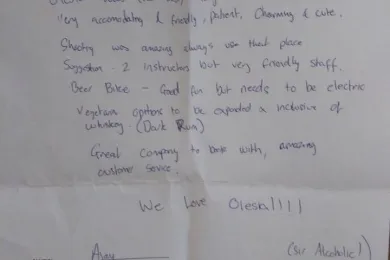 Very accomodating & friendly, patient. Charming & cute.
Shooting was amazing always use that place
Suggestion - 2 instructors but very friendly staff.
Beer Bike - Good fun but needs to be electric
Vegetarian options to be expanded & inclusive of
whiskey. (Dark Rum)
Great company to book with, amazing
customer service.
We Love Olesia!!!!
(Sir Alcoholic!)